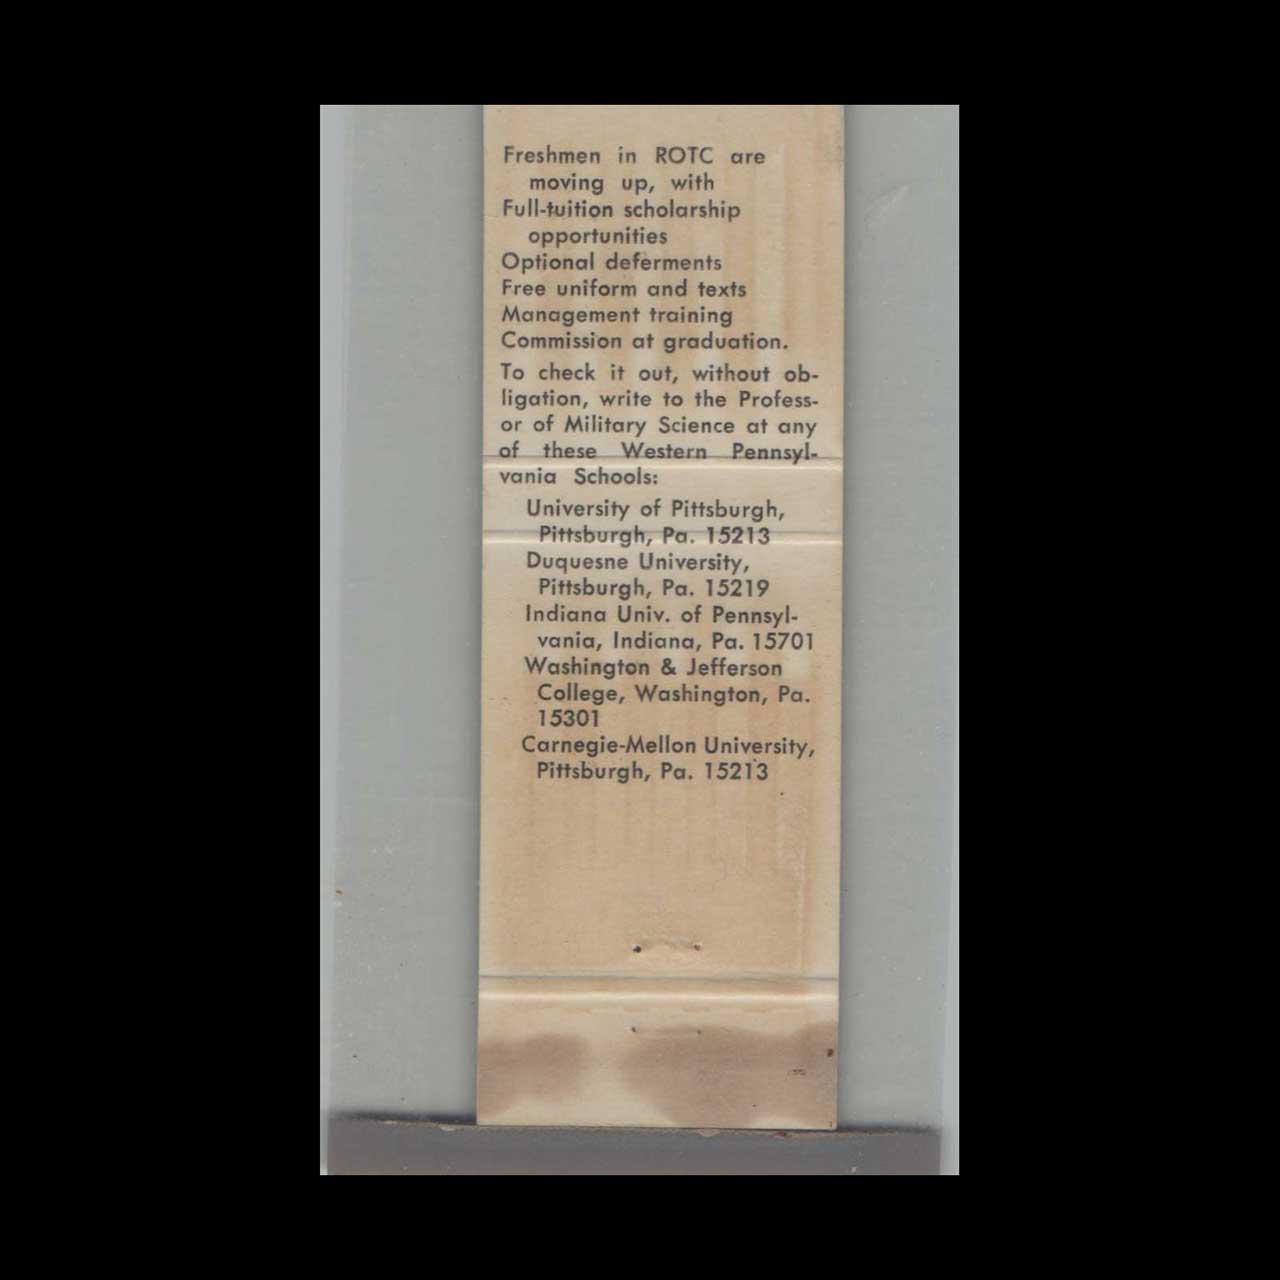 Freshmen in ROTC are
moving up, with
Full-tuition scholarship
opportunities
Optional deferments
Free uniform and texts
Management training
Commission at graduation.
To check it out, without ob-
ligation, write to the Profess-
or of Military Science at any
of these Western Pennsyl-
vania Schools:
University of Pittsburgh,
Pittsburgh, Pa. 15213
Duquesne University,
Pittsburgh, Pa. 15219
Indiana Univ. of Pennsyl-
vania, Indiana, Pa. 15701
Washington & Jefferson
College, Washington, Pa.
15301
Carnegie-Mellon University,
Pittsburgh, Pa. 15213